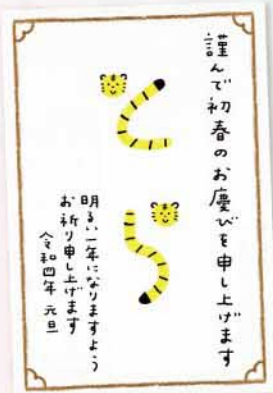 謹んで初春のお慶びを申し上げます
とら
明るい一年になりますよう
お祈り申し上げます
令和四年 元旦